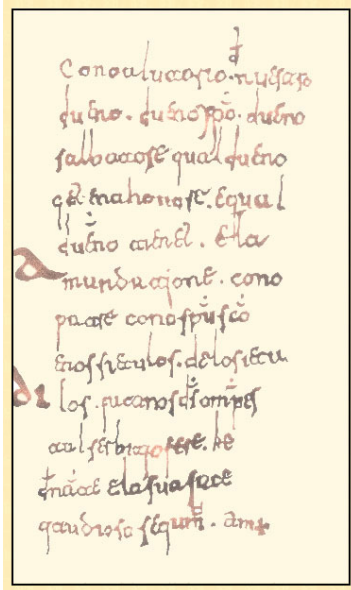 Cono aiutorio. nuestro
dueno. dueno xpo. dueno
salbatore qual dueno
get ena honore. equal
dueno tienet. ela
mandatjone. cono
patre cono spu sco
enos sieculos. delosiecu
los. facanos ds omnipes
tal serbitio fere. ke
denante ela sua face
gaudioso segam. am